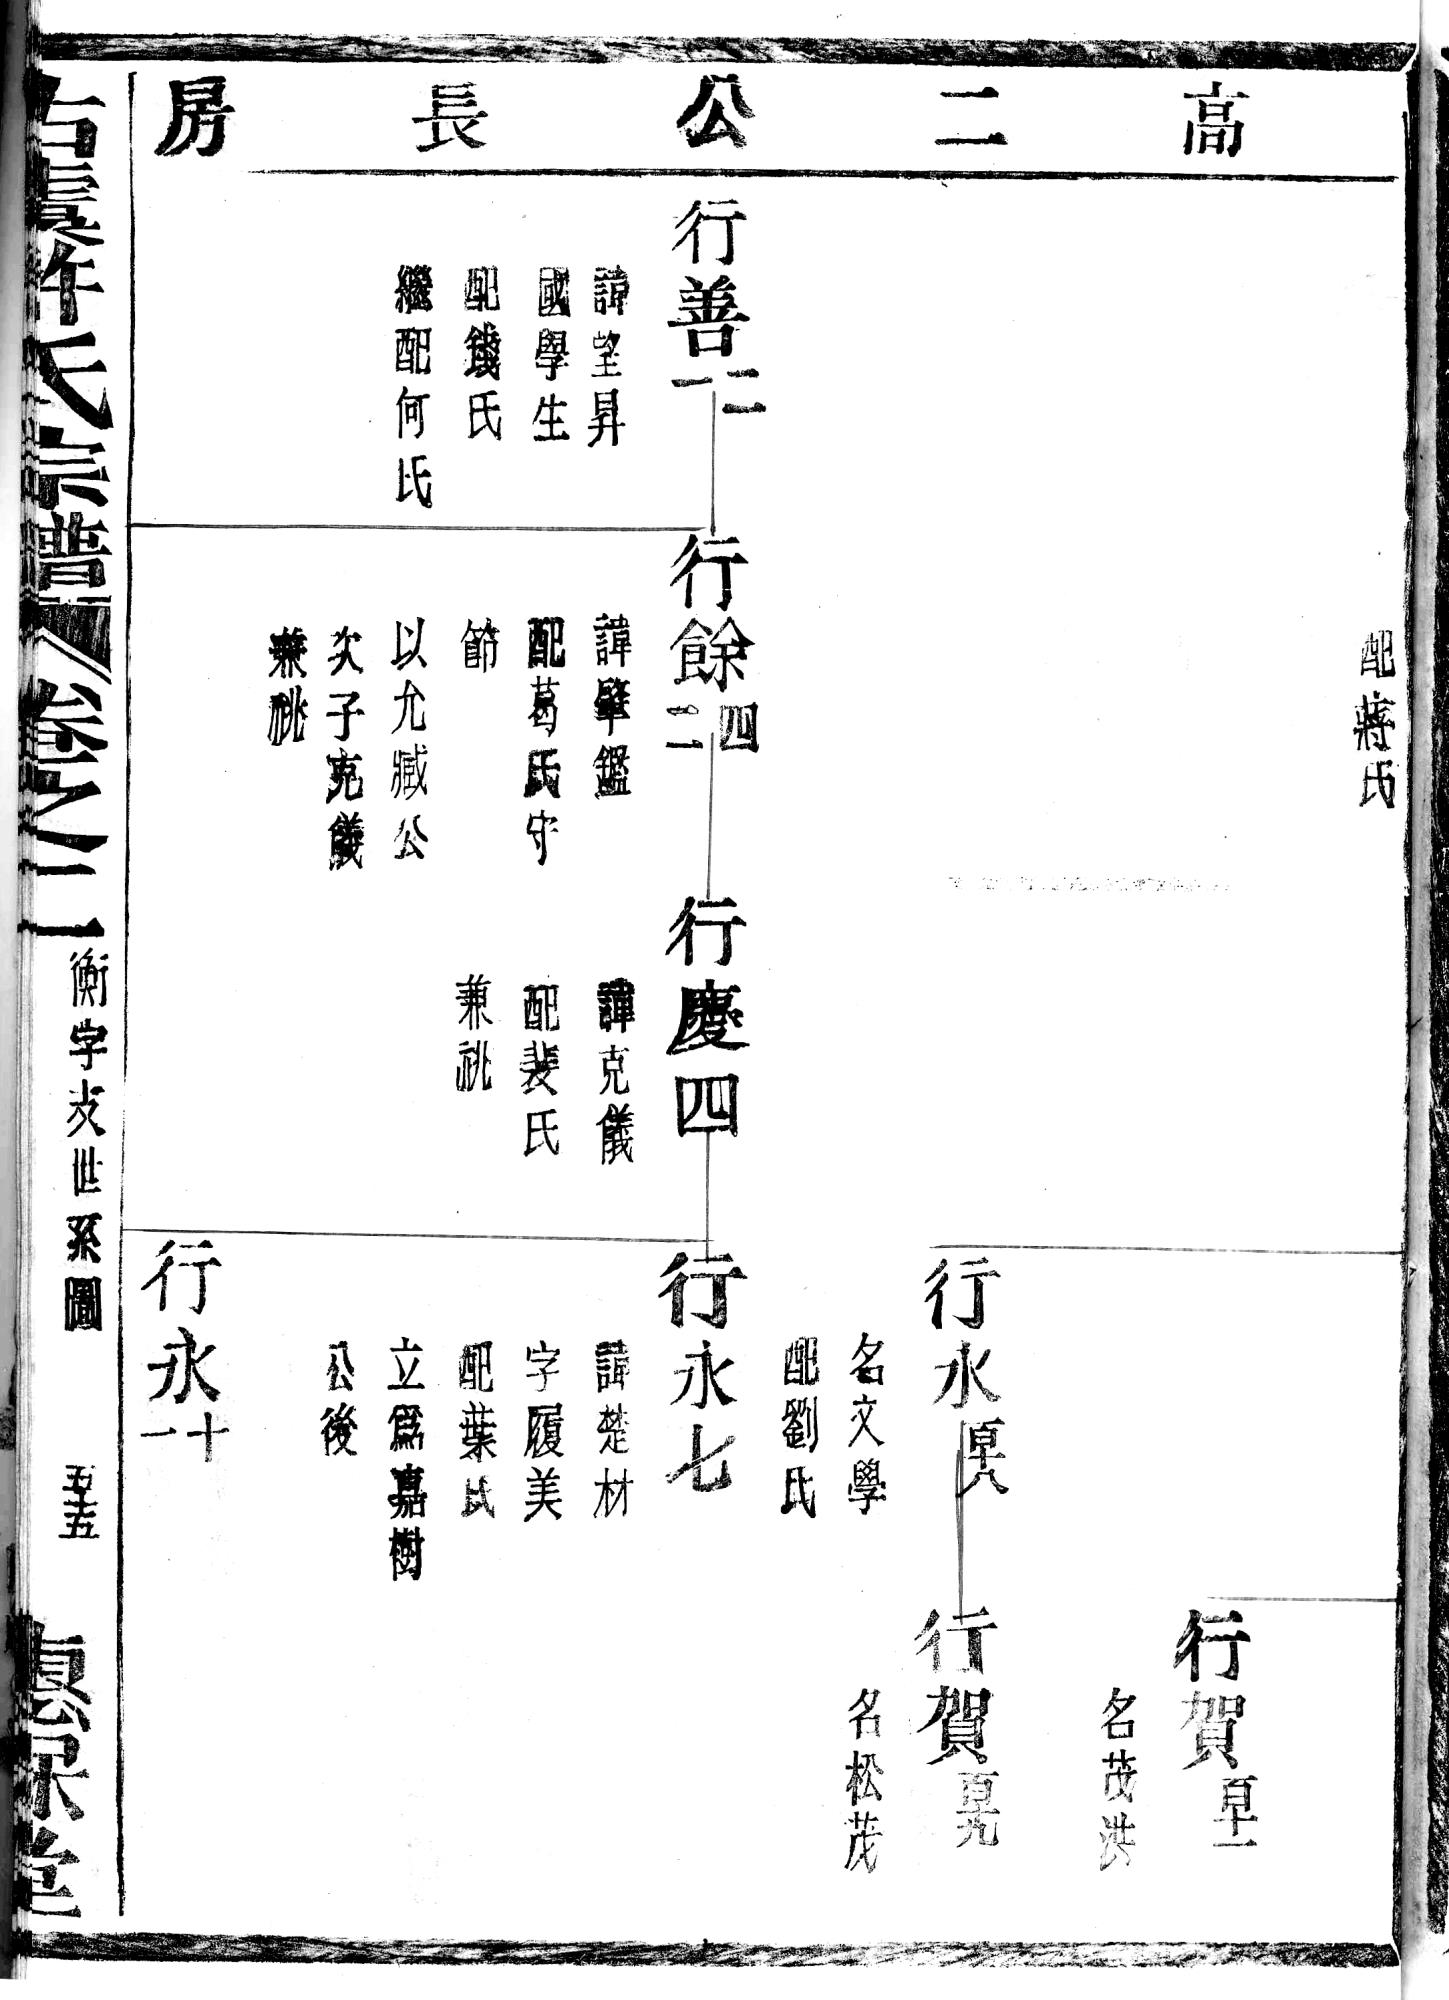 高二公長房
配蔣氏
行賀百早一
名茂洪
行永
名文學
配劉氏
行賀
名松茂
行善二一
諱望昇
國學生
配錢氏
繼配何氏
行餘四二
諱肇鑑
配葛氏守
節
以允臧公
次子克儀
兼祧
行慶四
諱克儀
配裴氏
兼祧
行永七
諱楚材
字履美
配葉氏
立爲嘉樹
公後
行永十一
古虞許氏宗譜
卷之二
衡字支世系圖
惠宗堂